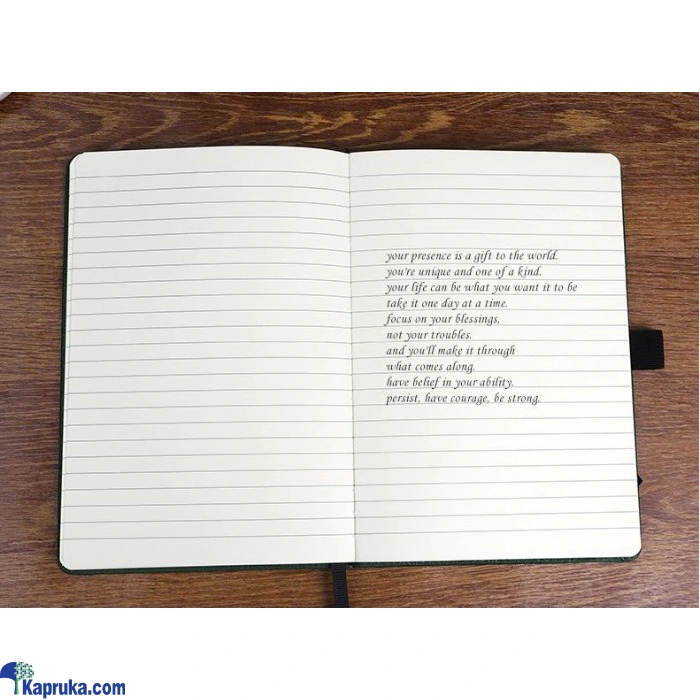 your presence is a gift to the world.
you're unique and one of a kind.
your life can be what you want it to be
take it one day at a time.
focus on your blessings,
not your troubles.
and you'll make it through
what comes along.
have belief in your ability.
persist, have courage, be strong.
Kapruka.com